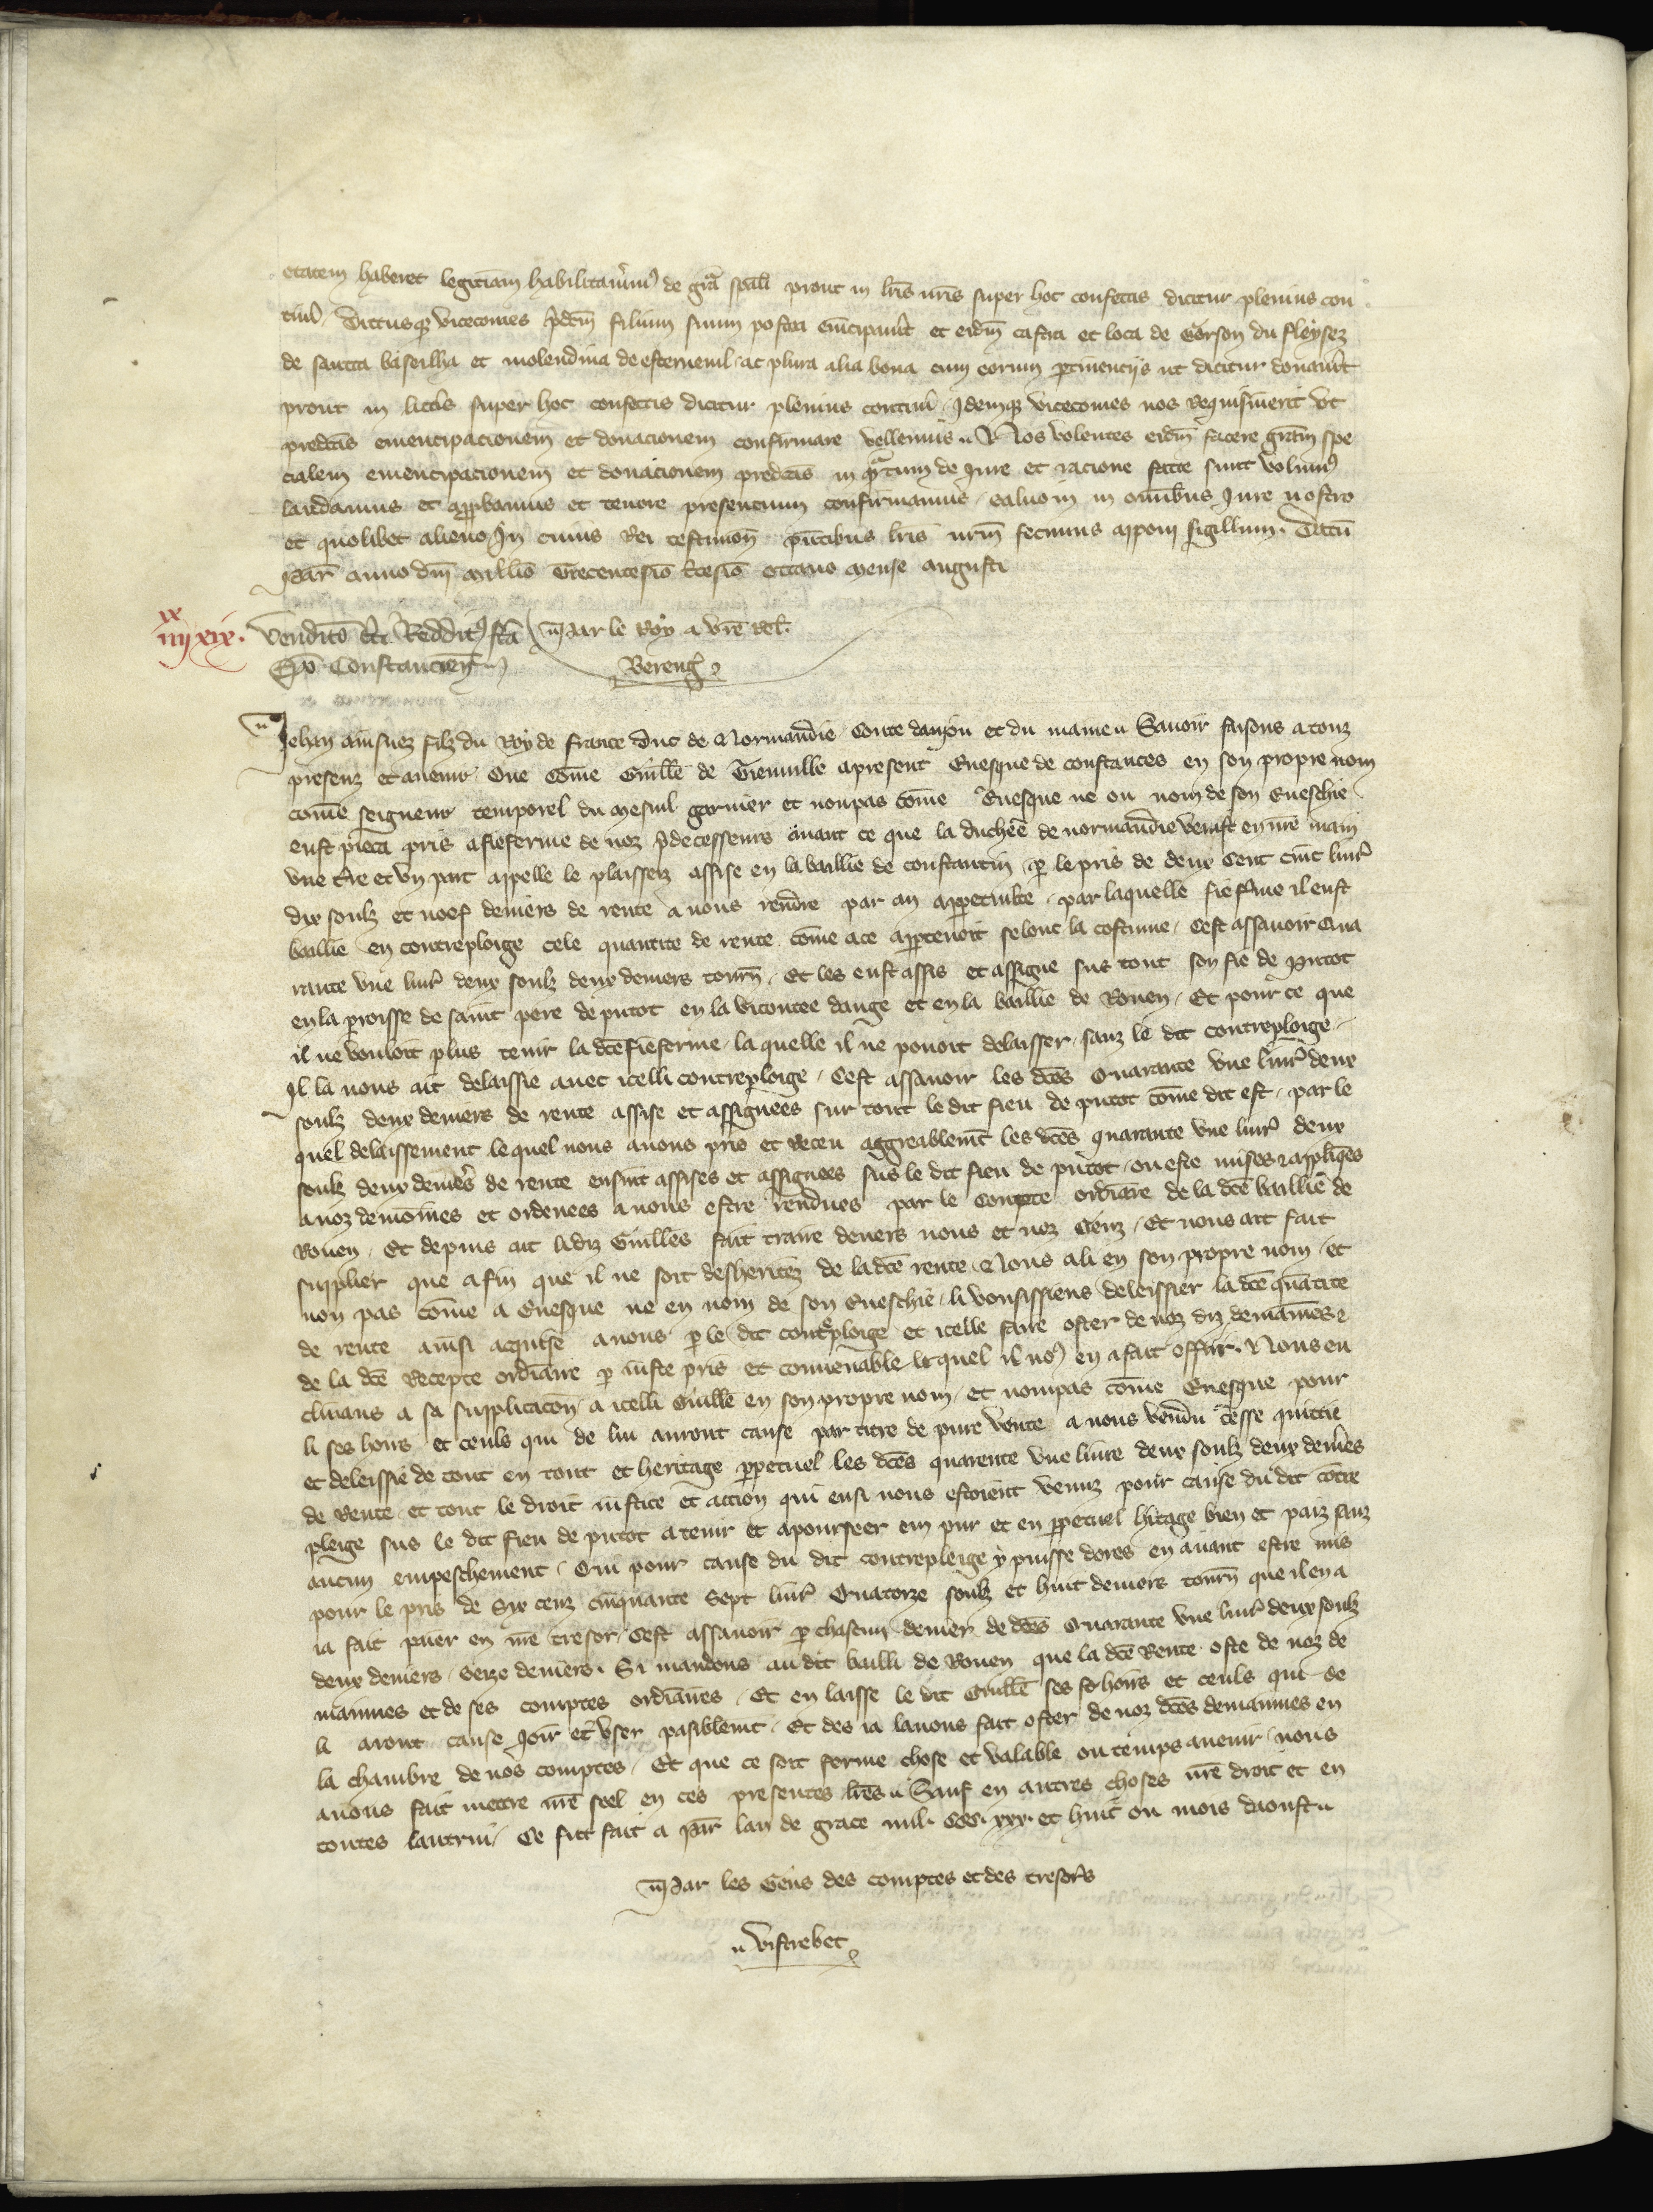 etatem haberet legitiam habilitaverim9 de gra spali prout in lris nris super hoc confectis dicitur plenius con
tineri. Dictusq vicecomes pdcm filium suum postea emcipavit et eidm castra et loca de Gorson du Fleysez
de sancta baseilha et molendina de esternenil ac plura alia bona cum eorum ptinenciis ut dicitur donavit
prout in litteris super hoc confectis dicitur plenius contineri. Idemq vicecomes nos requisiverit ut
predctas emencipacionem et donacionem confirmare vellemus. Nos volentes eidm facere gram spe
cialem emencipacionem et donacionem predctas in qntum de Jure et racione facte sunt volum9
laudamus et approbamus et tenore presencium confirmamus. Salvo in in omnibus Jure nostro
et quolibet alieno. In cuius Rei testimon pntibus lris nrm fecimus apponi sigillum. Datu
par anno dni millio Trecentesio tricesio octavo mense augusti
xx
iiij xix. Venditio cti Redditus fca Par le Roy a vre Rel.
Epo Constancien Bereng
Jehan ainsnez filz du Roy de France Duc de Normandie Conte danjou et du maine Savoir faisons a touz
presenz et avenir Que Come Guille de Tieuville apresent Evesque de constances en son propre nom
come seigneur temporel du mesnil garnier et nonpas come Evesque ne ou nom de son Eveschie
eust pieca pris afieferme de noz pdecesseurs avant ce que la duchee de normandie venist en nre main
une tre et un parc appelle le plaisseiz assise en la baillie de constantin p le pris de deux Cent cinc livr
dix soulz et noef deniers de rente a nous rendre par an appetuite par laquelle fiefferme il eust
baillie en contreploige cele quantite de rente come ace appartenoit selonc la costume. Cest assavoir Qua
rante une livr deux soulz deux deniers tourn. Et les eust assis et assigne sus tout son fie de putot
en la paroisse de saint pere de putot en la vicontee dauge et en la baillie de Rouen. Et pour ce que
il ne vouloit plus tenir la dce fiefferme laquelle il ne povoit delaisser sanz le dit contreploige
Il la nous ait delaissie avec icelli contreploige. Cest assavoir les dces Quarante une livr deux
soulz deux deniers de rente assise et assignees sur tout le dit fieu de putot come dit est. par le
quel delaissement lequel nous avons pris et receu aggreablemt les dces quarante une livr deux
soulz deux deniers de rente ensint assises et assignees sus le dit fieu de putot ou este mises appliqes
a noz demoines et ordenees a nous estre rendues par le Compte ordinaire de la dce baillie de
Rouen. Et depuis ait lidiz Guilles fait traire devers nous et noz Genz. Et nous ait fait
supplier que afin que il ne soit desheritez de la dce rente. Nous ali en son propre nom et
non pas come a Evesque ne en nom de son Eveschie li vousissiens deleissier la dce quatite
de rente ainsi acquise a nous p le dit contreploige et icelle faire oster de noz diz demaines
de la dce Recepte ordinaire p iuste pris et convenable lequel il no9 en a fait offrir. Nous en
clinans a sa supplicacon a icelli Guille en son propre nom et nompas come Evesque pour
li ses hoirs et ceuls qui de lui auront cause par titre de pure vente a nous vendu cesse quittie
et deleissie de tout en tout et heritage ppetuel les dces quarente une livre deux soulz deux deniers
de Rente et tout le droit iustice et accion qui ensi nous estoient venuz pour cause du dit contre
pleige sus le dit fieu de putot a tenir et a pourseer em pur et en ppetuel hitage bien et paiz sanz
aucun empeschement. Qui pour cause du dit contrepleige y puisse dores en avant estre mis
pour le pris de Six cenz cinquante Sept livr Quatorze soulz et huit deniers tourn que il en a
ia fait paier en nre tresor. Cest assavoir p chascun denier de dces Quarante une livr deux soulz
deux deniers seize deniers. Si mandons au dit bailli de Rouen que la dce Rente oste de noz de
maines et de ses comptes ordinaires. Et en laisse le dit Guille ses hoirs et ceuls qui de
li aront cause Joir et user pasiblemt. Et des ia lavons fait oster de noz dces demaines en
la chambre de nos comptes. Et que ce soit ferme chose et valable ou temps avenir nous
avons fait mectre nre seel en ces presentes lres. Sauf en autres choses nre droit et en
toutes lautrui. Ce fut fait a par lan de grace mil. CCC. xxx. et huit ou mois daoust
Par les Gens des comptes et des tresors
Vistrebec